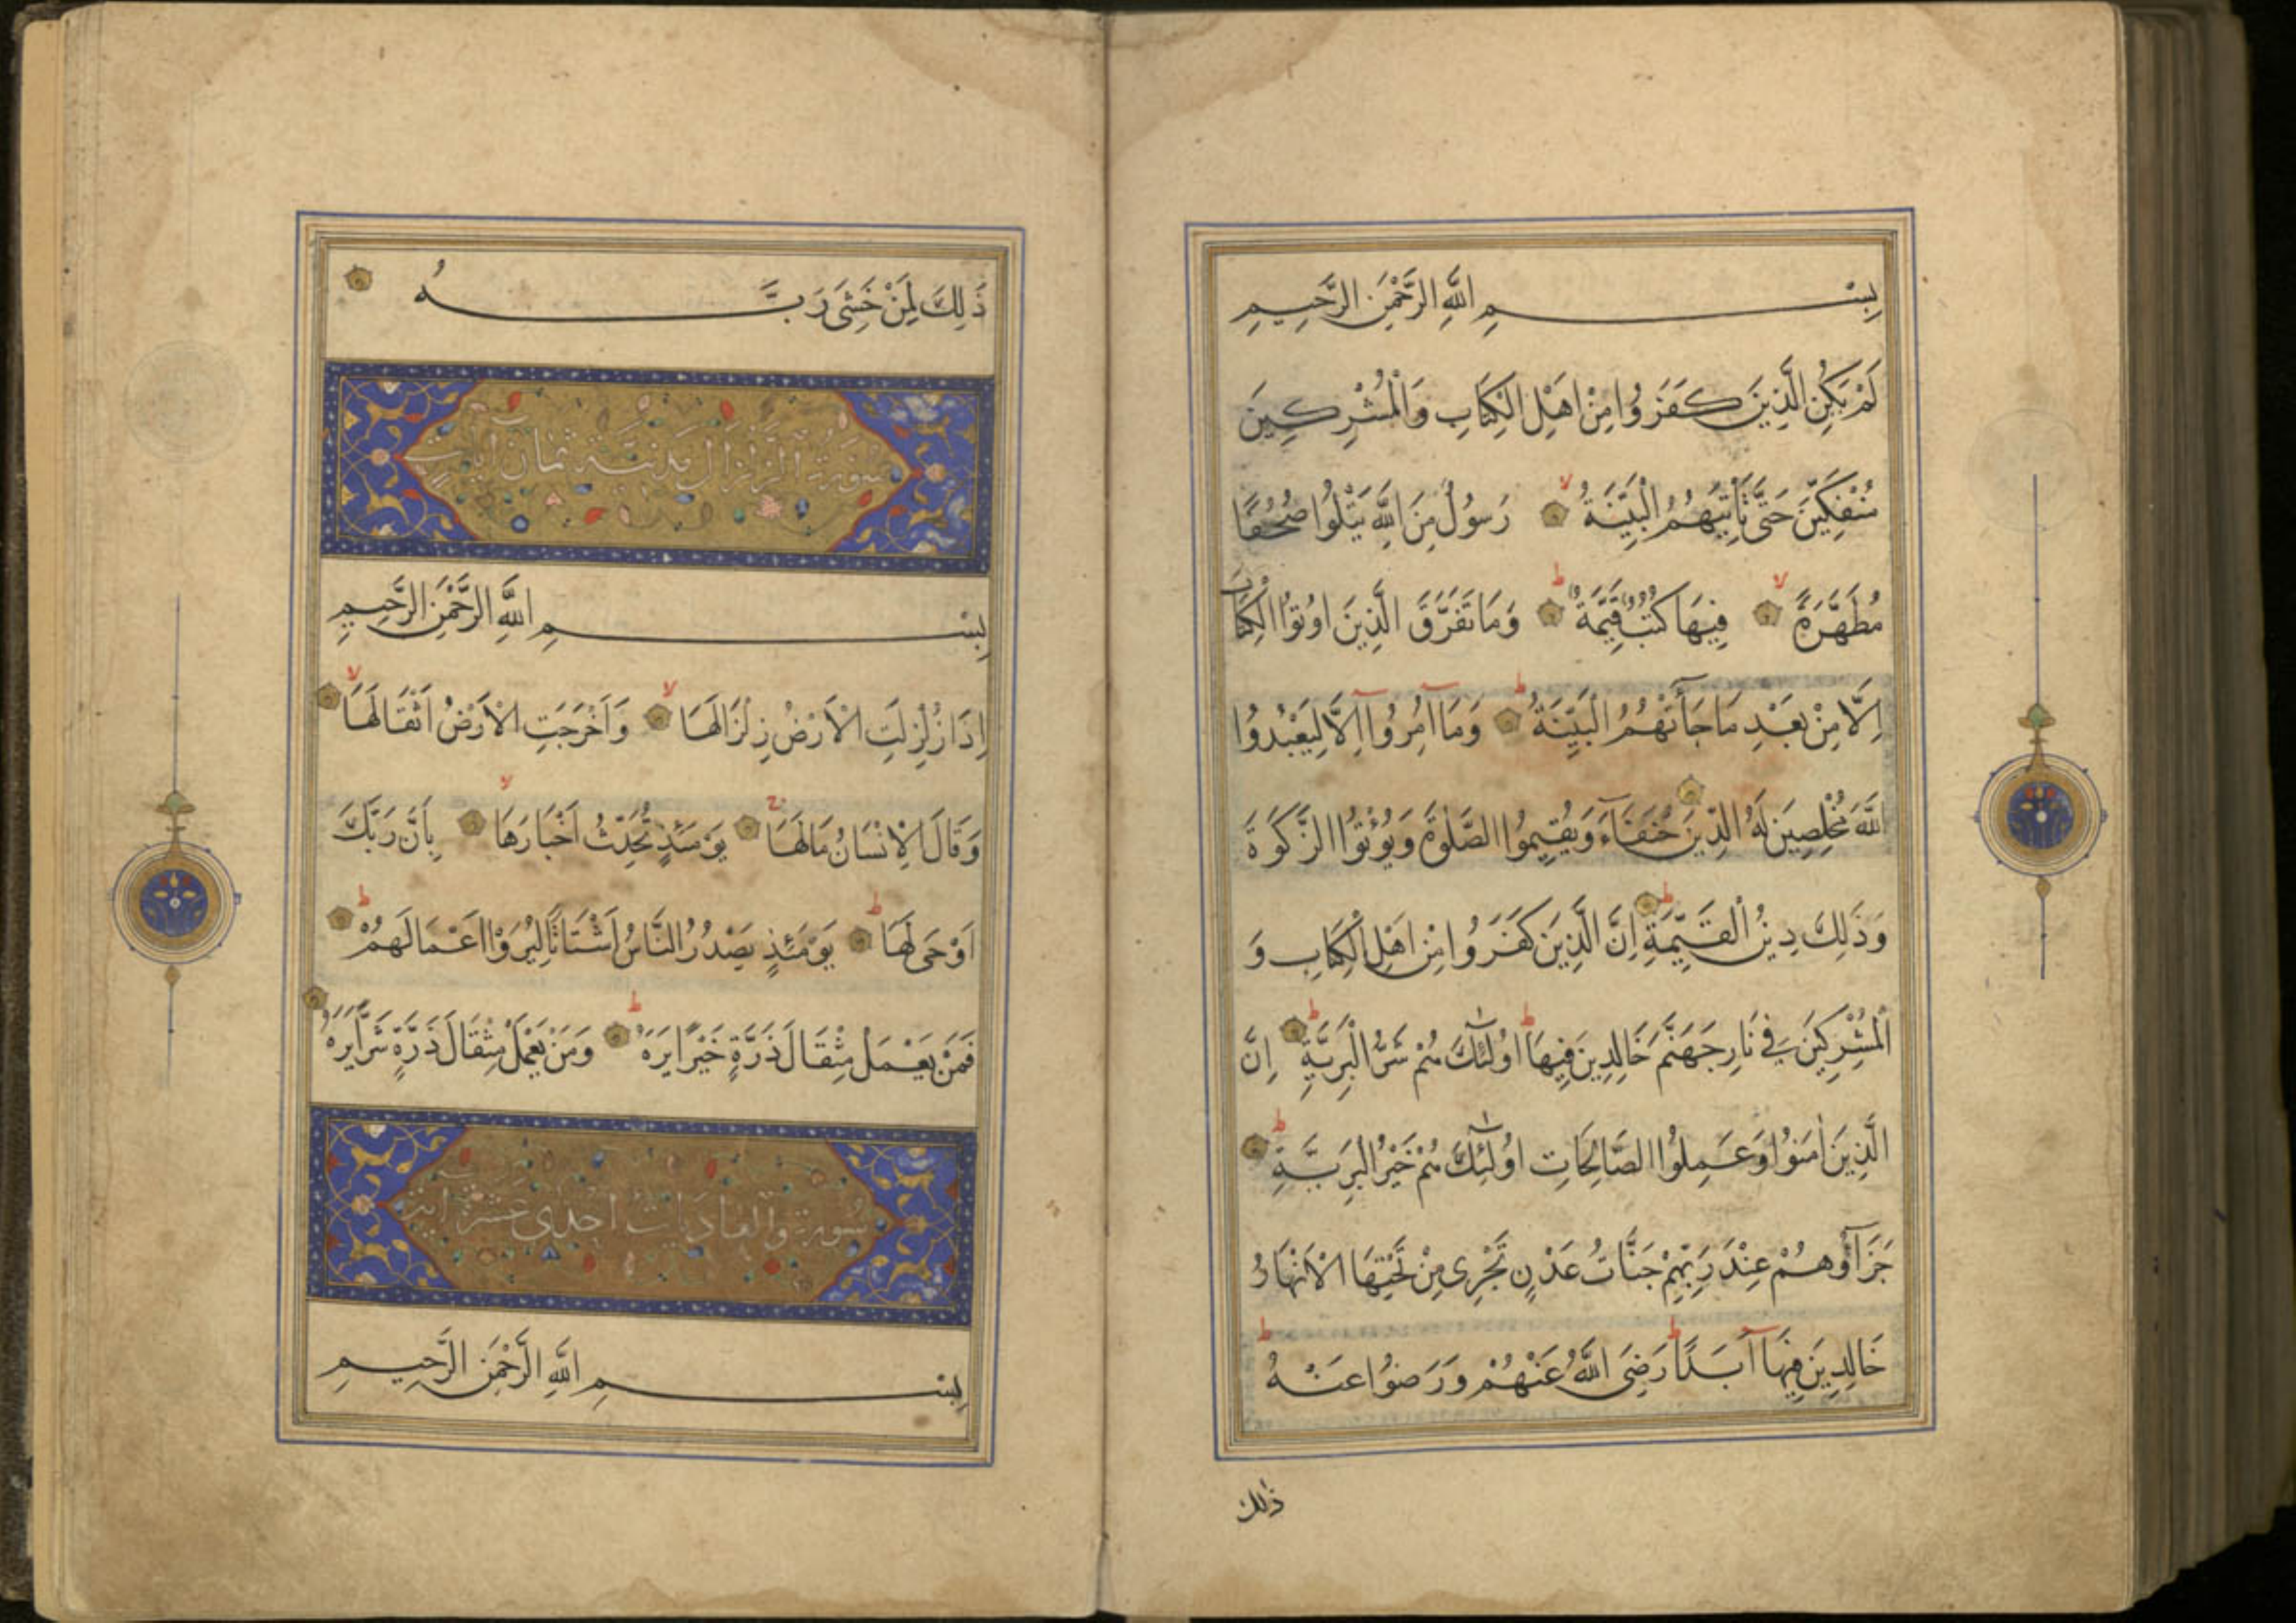 بِسْمِ اللَّهِ الرَّحْمٰنِ الرَّحِيمِ
لَمْ يَكُنِ الَّذِينَ كَفَرُوا مِنْ اَهْلِ الْكِتَابِ وَالْمُشْرِكِينَ
مُنْفَكِّينَ حَتَّى تَأْتِيَهُمُ الْبَيِّنَةُ ۙ رَسُولٌ مِنَ اللَّهِ يَتْلُوا صُحُفًا
مُطَهَّرَةً ۙ فِيهَا كُتُبٌ قَيِّمَةٌ ط وَمَا تَفَرَّقَ الَّذِينَ اُوتُوا الْكِتَابَ
اِلَّا مِنْ بَعْدِ مَا جَآءَتْهُمُ الْبَيِّنَةُ ط وَمَآ اُمِرُوٓا اِلَّا لِيَعْبُدُوا
اللَّهَ مُخْلِصِينَ لَهُ الدِّينَ حُنَفَآءَ وَيُقِيمُوا الصَّلٰوةَ وَيُؤْتُوا الزَّكَوةَ
وَذَلِكَ دِينُ الْقَيِّمَةِ ط اِنَّ الَّذِينَ كَفَرُوا مِنْ اَهْلِ الْكِتَابِ وَ
الْمُشْرِكِينَ فِي نَارِ جَهَنَّمَ خَالِدِينَ فِيهَا ط اُولٰٓئِكَ هُمْ شَرُّ الْبَرِيَّةِ ط اِنَّ
الَّذِينَ اٰمَنُوا وَعَمِلُوا الصَّالِحَاتِ اُولٰٓئِكَ هُمْ خَيْرُ الْبَرِيَّةِ ط
جَزَآؤُهُمْ عِنْدَ رَبِّهِمْ جَنَّاتُ عَدْنٍ تَجْرِى مِنْ تَحْتِهَا الْاَنْهَارُ
خَالِدِينَ فِيهَآ اَبَدًا ط رَضِىَ اللَّهُ عَنْهُمْ وَرَضُوا عَنْهُ ط
ذٰلك
ذَلِكَ لِمَنْ خَشِىَ رَبَّهُ
سورة الزلزال مدنية ثمان آيات
بِسْمِ اللَّهِ الرَّحْمٰنِ الرَّحِيمِ
اِذَا زُلْزِلَتِ الْاَرْضُ زِلْزَالَهَا ۙ وَاَخْرَجَتِ الْاَرْضُ اَثْقَالَهَا ۙ
وَقَالَ الْاِنْسَانُ مَا لَهَا ج يَوْمَئِذٍ تُحَدِّثُ اَخْبَارَهَا ۙ بِاَنَّ رَبَّكَ
اَوْحَى لَهَا ط يَوْمَئِذٍ يَصْدُرُ النَّاسُ اَشْتَاتًا لِيُرَوْا اَعْمَالَهُمْ ط
فَمَنْ يَعْمَلْ مِثْقَالَ ذَرَّةٍ خَيْرًا يَرَهُ ط وَمَنْ يَعْمَلْ مِثْقَالَ ذَرَّةٍ شَرًّا يَرَهُ
سورة والعاديات احدى عشرة اية
بِسْمِ اللَّهِ الرَّحْمٰنِ الرَّحِيمِ